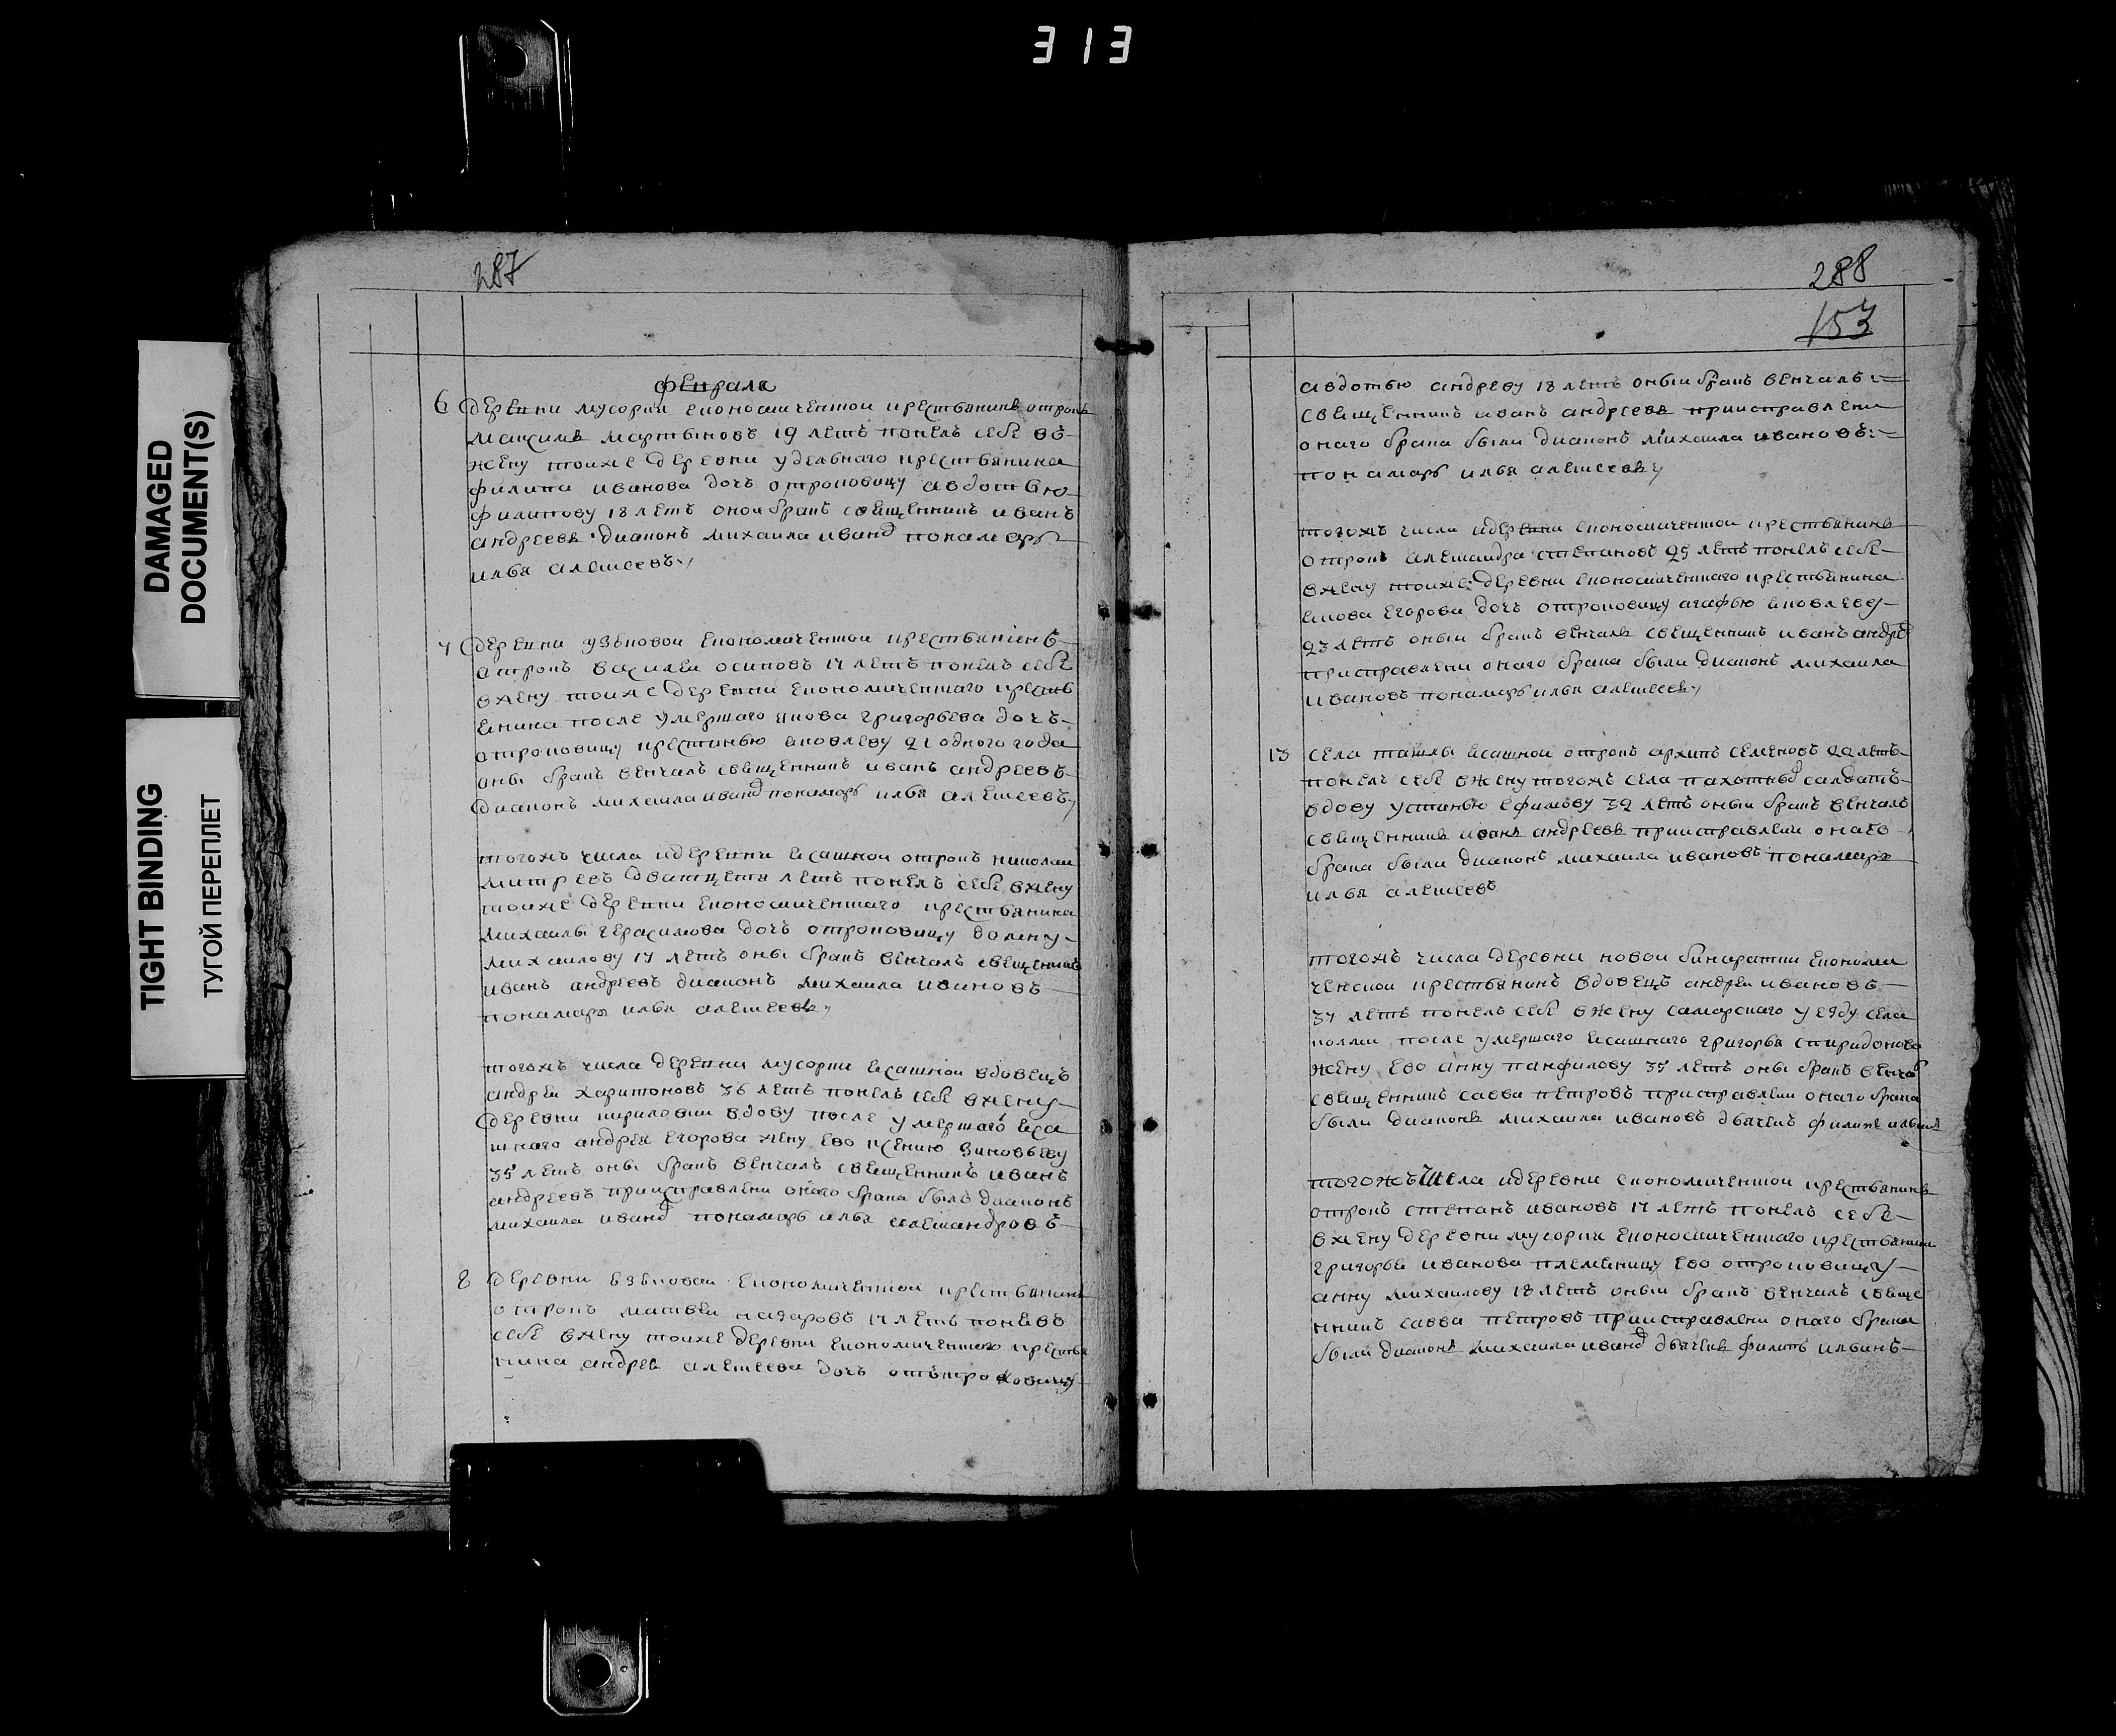 313
DAMAGED
DOCUMENT(S)
TIGHT BINDING
ТУГОЙ ПЕРЕПЛЕТ
287
февраля
6 деревни мусорки економической крестьянинъ отрокъ
максимъ мартыновъ 19 летъ понелъ себе въ
жену тоиже деревни удельнаго крестьянина
филипа иванова дочь отроковицу авдотью
филипову 18 летъ оной бракъ свещенникъ иванъ
андреевъ диаконъ михаила иванд понамарь
илья алексеевъ
7 деревни узьковой економической крестьянинъ
отрокъ василеи осиповъ 17 летъ понелъ себе
вжену тоиже деревни економическаго кресть
енина после умершаго якова григорьева дочь
отроковицу крестинью яковлеву 21 одного года
оны бракъ венчалъ свещенникъ иванъ андреевъ
диаконъ михаила иванд понамарь илья алексеевъ
тогожъ числа идеревни ясашной отрокъ николаи
митревъ дватцеть летъ понелъ себе вжену
тоиже деревни економическаго крестьянина
михаилы герасимова дочь отроковицу
михаилову 17 летъ оны бракъ венчалъ свещенникъ
иванъ андреевъ диаконъ михаила ивановъ
понамарь илья алексеевъ
тогожъ числа деревни мусорки ясашнои вдовецъ
андреи харитоновъ 36 летъ понелъ себе вжену
деревни кириловки вдову после умершаго яса
шнаго андрея егорова жену ево ксению зиновьеву
35 летъ оны бракъ венчалъ свещенникъ иванъ
андреевъ приисправлени онаго брака былъ диаконъ
михаила иванд понамарь илья александровъ
8 деревни взьковаи економической крестьянинъ
отрокъ матвеи назаровъ 17 летъ понелъ
себе вжену тоиже деревни економическаго кресть
нина андрея алексеева дочь отъкроковицу
288
153
авдотью андреву 18 летъ оныи бракъ венчалъ
свещенникъ иванъ андреевъ приисправлени
онаго брака были диаконъ михаила ивановъ
понамарь илья алексеевъ
тогожъ числа идеревни економической крестьянинъ
отрокъ александра степановъ 25 летъ понелъ себе
вжену тоиже деревни економическаго крестьянина
якова егорова дочь отроковицу агафью яковлеву
23 летъ оныи бракъ венчалъ свещенникъ иванъ андре
присправлени онаго брака были диаконъ михаила
ивановъ понамарь илья алексеевъ
13 села ташлы ясашнои отрокъ архипъ семеновъ 22 летъ
понелъ себе вжену тогожъ села пахотныд салдатъ
вдову устинью ефимову 32 летъ оныи бракъ венчалъ
свещенникъ иванъ андреевъ приисправлени онаго
брака были диаконъ михаила ивановъ понамарь
илья алексеевъ
тогожъ числа деревни новои бинаратки економи
ческои крестьянинъ вдовецъ андреи ивановъ
37 летъ понелъ себе вжену самарскаго уезду села
после умершаго ясашнаго григорья спиридонова
жену ево анну панфилову 35 летъ оны бракъ венчал
свещенникъ савва петровъ присправлении онаго брака
были диаконъ михаила ивановъ дьячекъ филипъ ильинъ
тогожъ числа идеревни економической крестьянинъ
отрокъ степанъ ивановъ 17 летъ понелъ себе
вжену деревни мусорки економическаго крестьянина
григорья иванова племеницу ево отроковицу
анну михаилову 18 летъ оныи бракъ венчалъ свеще
нникъ савва петровъ приисправлени онаго брака
были диаконъ михаила иванд дьячекъ филипъ ильинъ